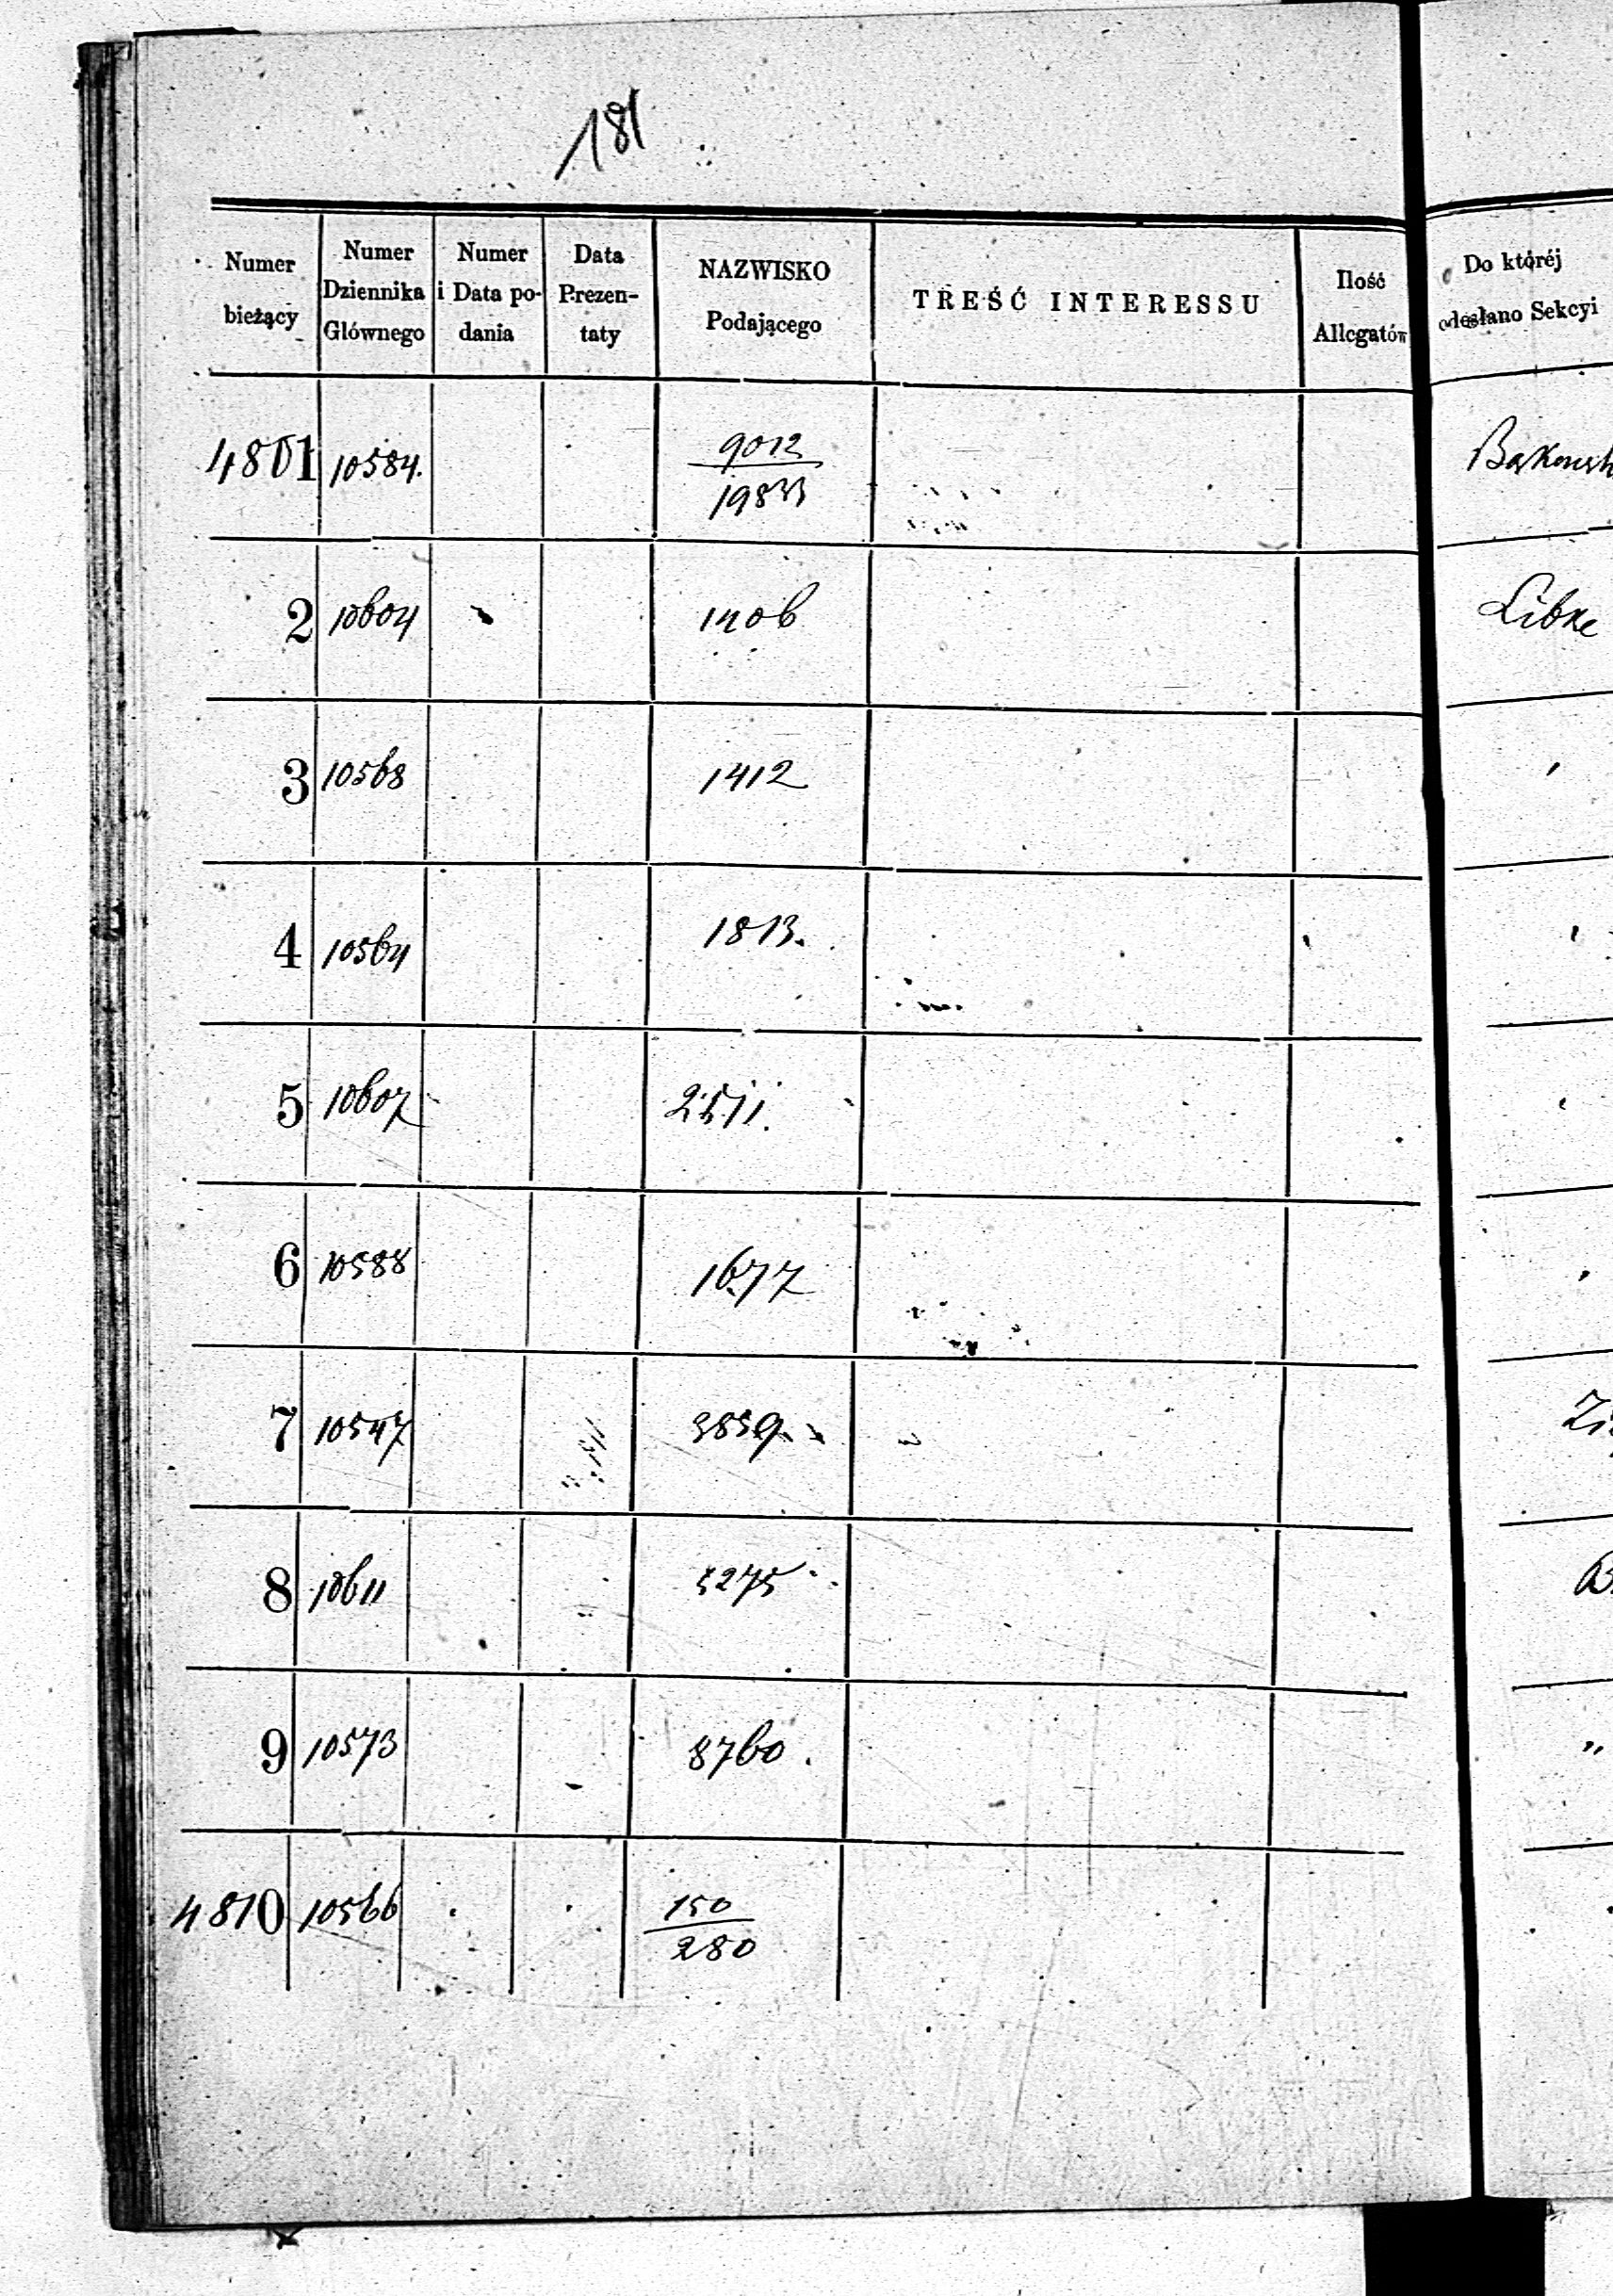 181
Numer bieżący
Numer Dziennika Głównego
Numer i Data podania
Data Prezentaty
NAZWISKO Podającego
TREŚĆ INTERESSU
Ilość Allegatów
Do któréj odesłano Sekcyi
4801 10584. 9012
19833
2 10604 1406 Libke
3 10568 1412 "
4 10564 1813. "
5 10607 2511. "
6 10588 1677 "
7 10547 3839.
8 10611 5275
9 10573 8760. "
4810 10566 150
280